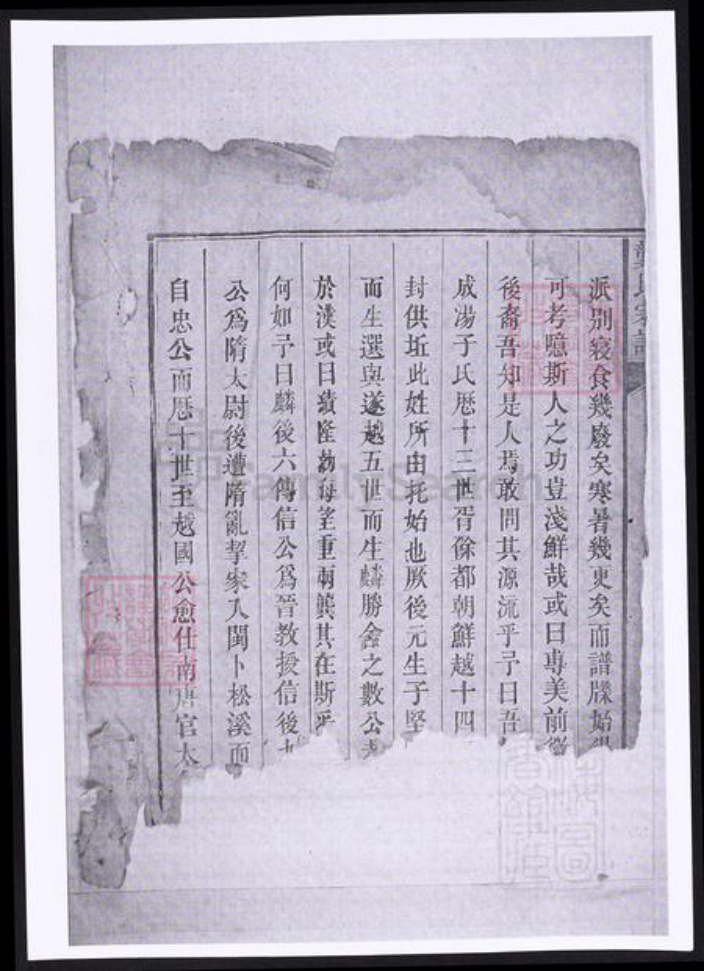 派別寢食幾廢矣寒暑幾更矣而譜牒始
可考噫斯人之功豈淺鮮哉或曰專美前
後裔吾知是人焉敢問其源流乎予曰吾
成湯子氏厯十三世胥餘都朝鮮越十四
封供坵此姓所由托始也厥後元生子堅
而生選與遂越五世而生麟勝鑫之數公
於漢或曰績隆渤海望重兩龔其在斯乎
何如予曰麟後六傳信公爲晉教授信後
公爲隋太尉後遭隋亂挈家入閩卜松溪而
自忠公而厯十世至越國公愈仕南唐官太
FamilySearch